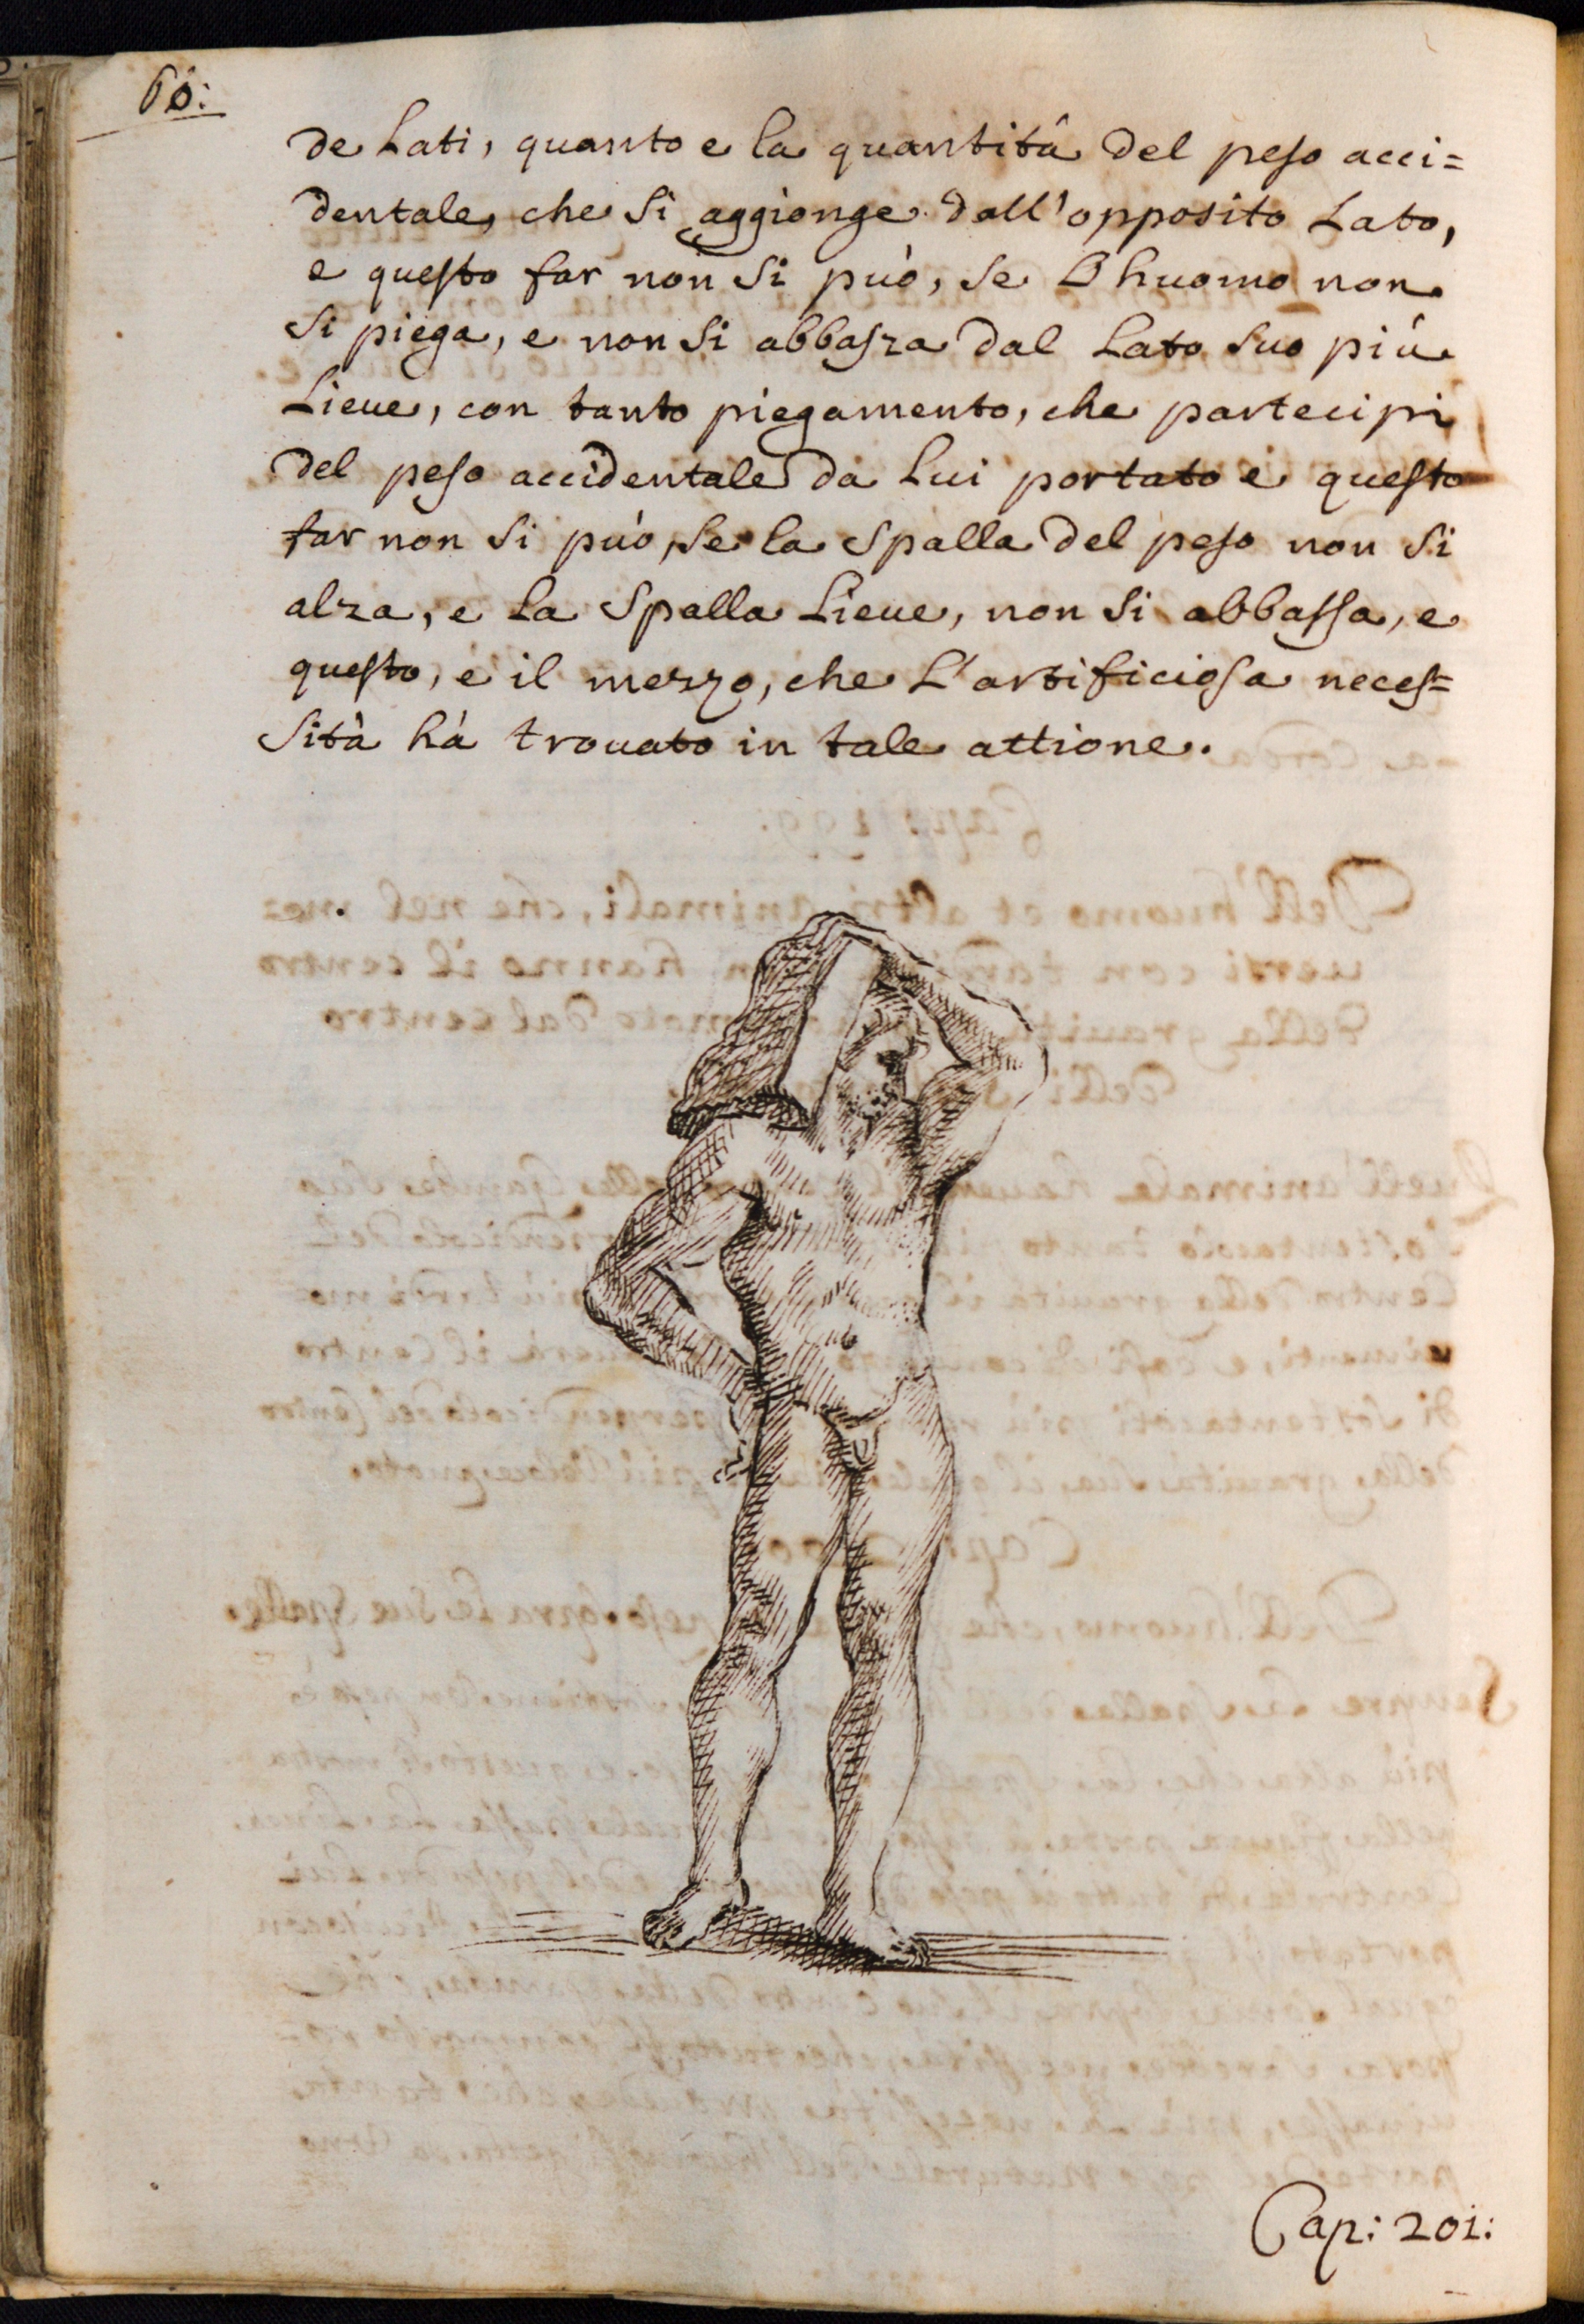 60:
de Lati, quanto e la quantità del peso acci=
dentale, che Si aggionge dall'opposito Lato,
e questo far non Si può, Se L'huomo non
Si piega, e non Si abbassa dal Lato Suo più
Lieue, con tanto piegamento, che partecipi
del peso accidentale da Lui portato e questo
far non Si può, Se la Spalla del peso non Si
alza, e La Spalla Lieue, non Si abbassa, e
questo, e il mezzo, che L'artificiosa neces=
Sità hà trouato in tale attione.
Cap: 201: